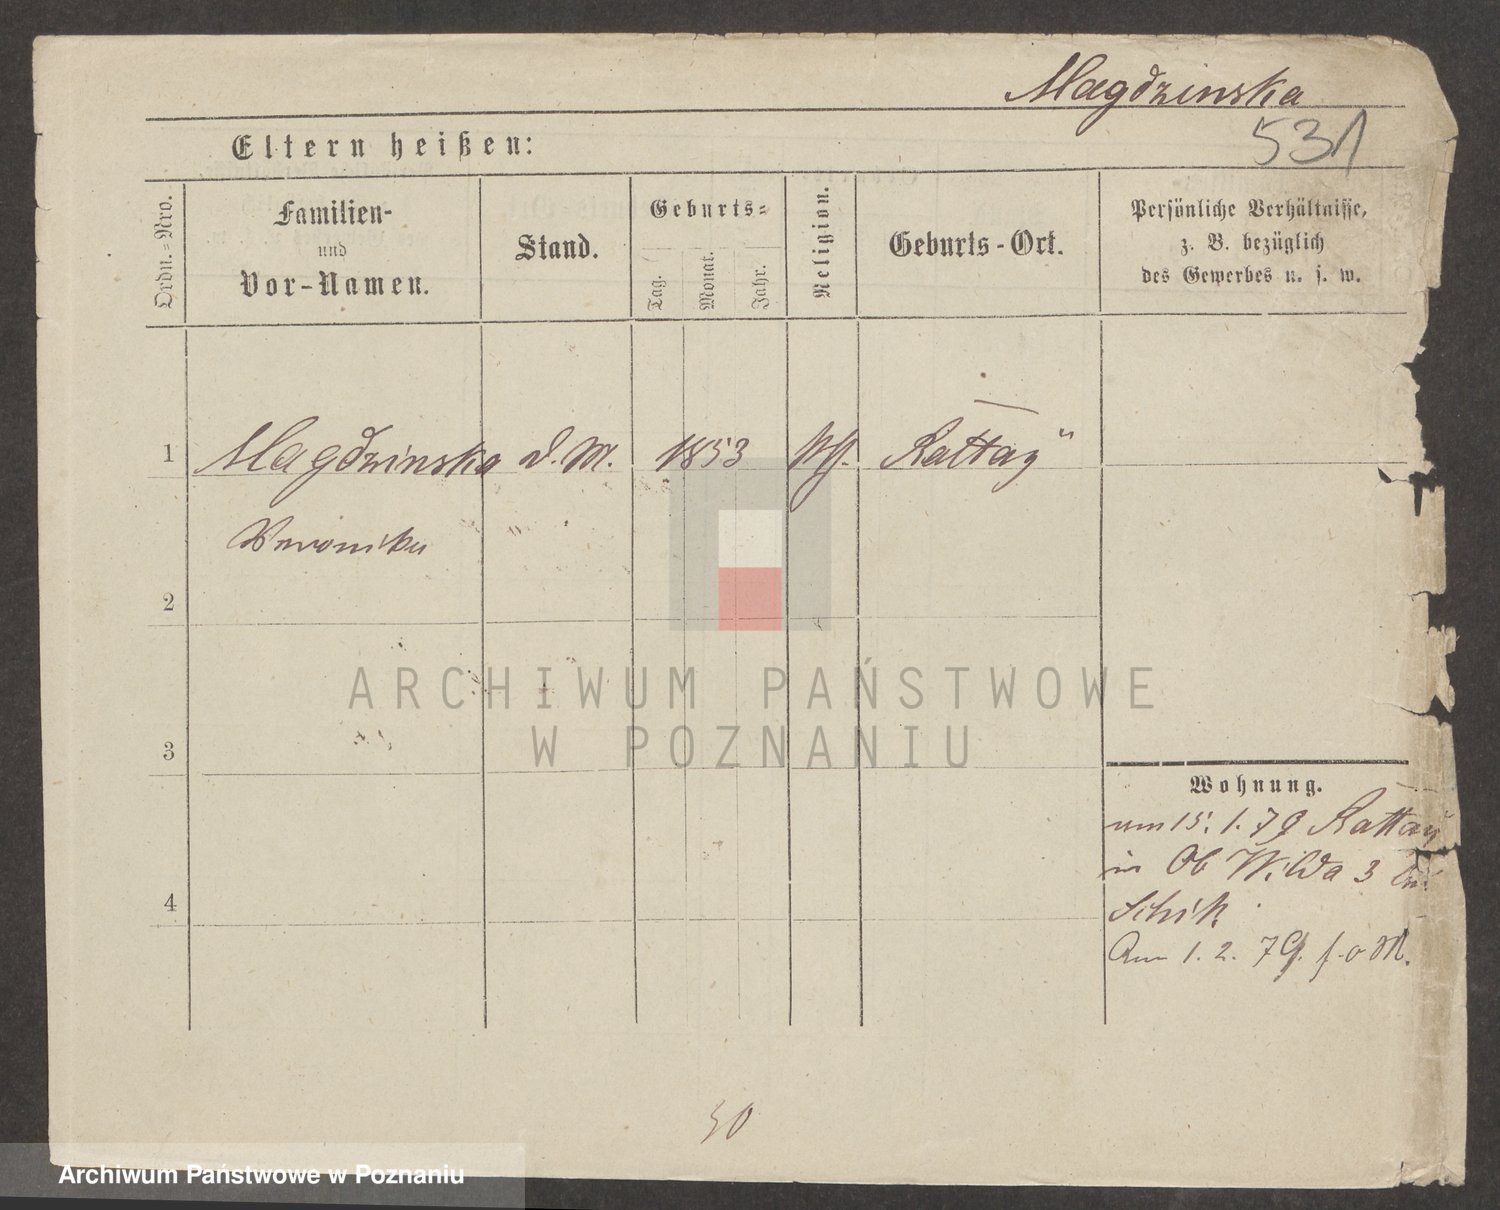 Magdzinska
531
Eltern heißen:
Ordn.=Nro.
Familien-
und
Vor-Namen.
Stand.
Geburts=
Tag.
Monat.
Jahr.
Religion.
Geburts-Ort.
Persönliche Verhältnisse,
z. B. bezüglich
des Gewerbes u. s. w.
1
Magdzinska D. M. 1853 Rattay
Veronika
2
3
4
Wohnung.
15. 1. 79 Rattay
in Ob Wilda 3
Schik
Am 1. 2. 79. f. o M.
50
ARCHIWUM PAŃSTWOWE
W POZNANIU
Archiwum Państwowe w Poznaniu